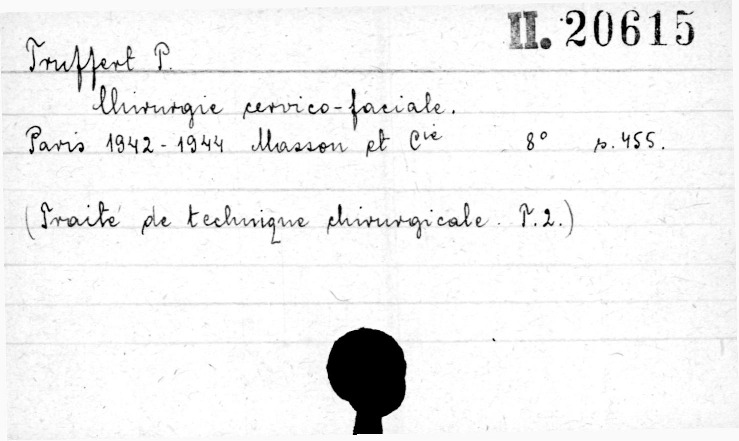 II. 20615
Truffert P.
Chirurgie cervico-faciale.
Paris 1942-1944 Masson et Cie 8° p. 455.
(Traité de technique chirurgicale. T.2.)